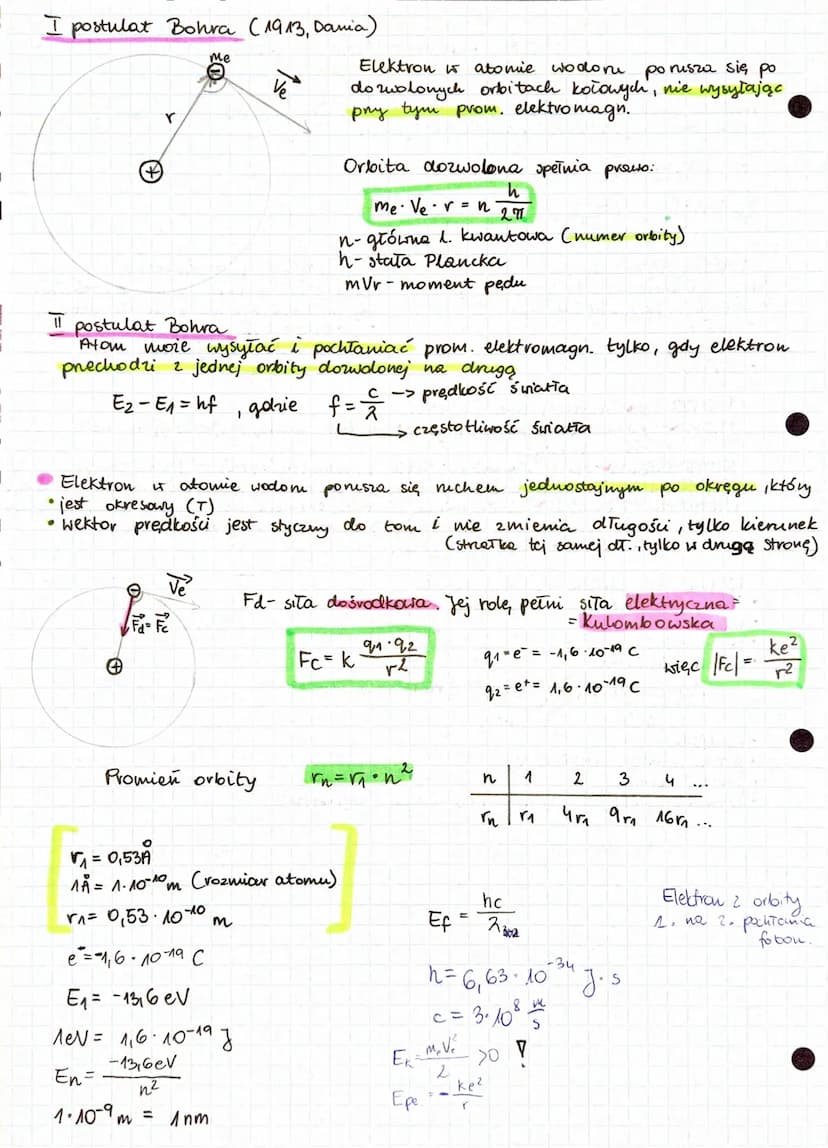 I postulat Bohra (1913, Dania)
me
Ve
r
Elektron w atomie wodoru porusza się po
dozwolonych orbitach kołowych, nie wysyłając
przy tym prom. elektromagn.
Orbita dozwolona spełnia prawo:
me · Ve · r = n h/2π
n - główna l. kwantowa (numer orbity)
h - stała Plancka
mVr - moment pędu
II postulat Bohra
Atom może wysyłać i pochłaniać prom. elektromagn. tylko, gdy elektron
przechodzi z jednej orbity dozwolonej na drugą
E₂ - E₁ = hf , gdzie f = c/λ -> prędkość światła
-> częstotliwość światła
Elektron w atomie wodoru porusza się ruchem jednostajnym po okręgu, który
• jest okresowy (T)
• wektor prędkości jest styczny do toru i nie zmienia długości, tylko kierunek
(strzałka tej samej dł., tylko w drugą stronę)
Ve
Fd = Fc
Fd - siła dośrodkowa. Jej rolę pełni siła elektryczna =
= Kulombowska
Fc = k q₁·q₂/r²
q₁ = e⁻ = -1,6·10⁻¹⁹ C
q₂ = e⁺ = 1,6·10⁻¹⁹ C
więc |Fc| = ke²/r²
Promień orbity rn = r₁ · n²
n 1 2 3 4 ...
rn r₁ 4r₁ 9r₁ 16r₁ ...
r₁ = 0,53Å
1Å = 1·10⁻¹⁰ m (rozmiar atomu)
r₁ = 0,53·10⁻¹⁰ m
e⁻ = -1,6·10⁻¹⁹ C
E₁ = -13,6 eV
1eV = 1,6·10⁻¹⁹ J
En = -13,6eV/n²
1·10⁻⁹ m = 1nm
Ef = hc/λ
h = 6,63·10⁻³⁴ J·s
c = 3·10⁸ m/s
Ek = meVe²/2 >0 !
Epe = - ke²/r
Elektron z orbity
1. na 2. pochłania
foton.